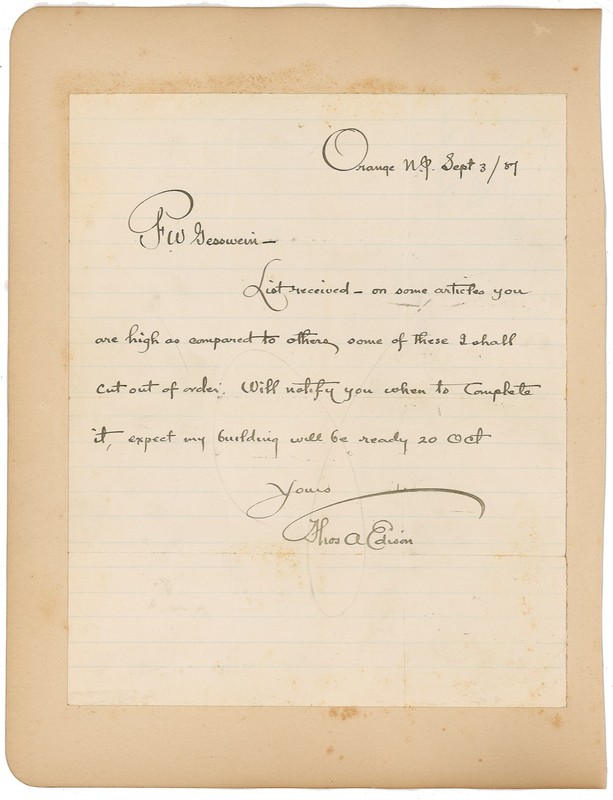 Orange N.J. Sept 3/87
F W Gesswein —
List received — on some articles you
are high as compared to others, some of these I shall
cut out of order. Will notify you when to Complete
it, expect my building will be ready 20 Oct
Yours
Thos A Edison